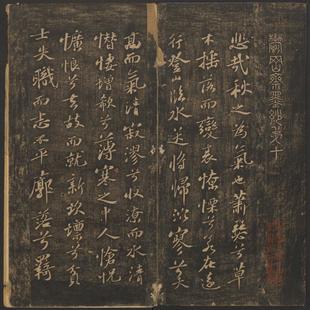 鬱岡齋墨妙第十
悲哉秋之為氣也蕭瑟兮草
木搖落而變衰憭慄兮若在遠
行登山臨水送將歸泬寥兮天
高而氣清寂漻兮收潦而水清
憯悽增欷兮薄寒之中人愴怳
懭悢兮去故而就新坎壈兮貧
士失職而志不平廓落兮羈